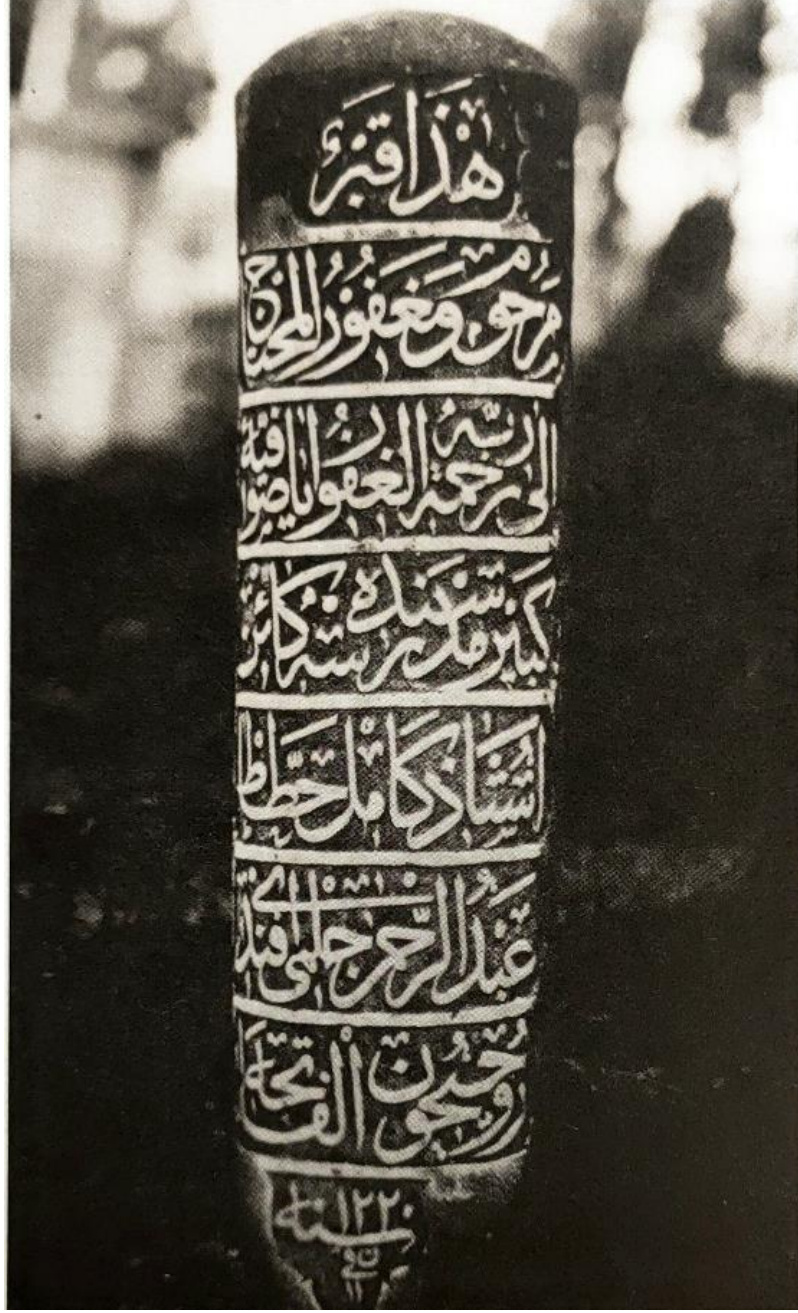 هذا قبر
مرحوم ومغفور المحتاج
الى رحمة ربه الغفور اياصوفيه
كبير مدرسه سنده كائن
استاذ كامل خطاط
عبد الرحمن چلبى افندى
روحيچون الفاتحه
سنة ١٢٢٠